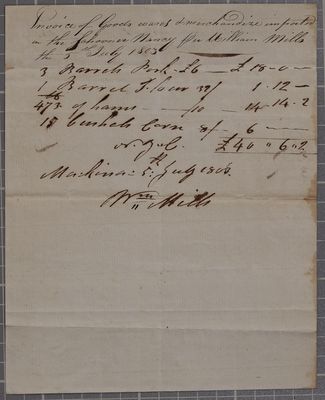 Invoice of Goods wares & merchandize imported
in the Schooner Nancy for William Mills
the 5th July 1803
3 Barrels Pork £6 — £ 18 - 0 —
1 Barrel Flour 32/ 1 - 12 —
473 lb of hams — /10 14 - 14 - 2
15 bushels Corn 8/ - 6 —
£40 " 6 " 2
Mackinac 5th July 1803
Wm Mills